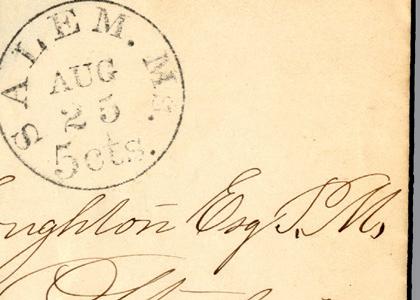 SALEM. Ms.
AUG
25
5cts.
oughton Esq P.M.